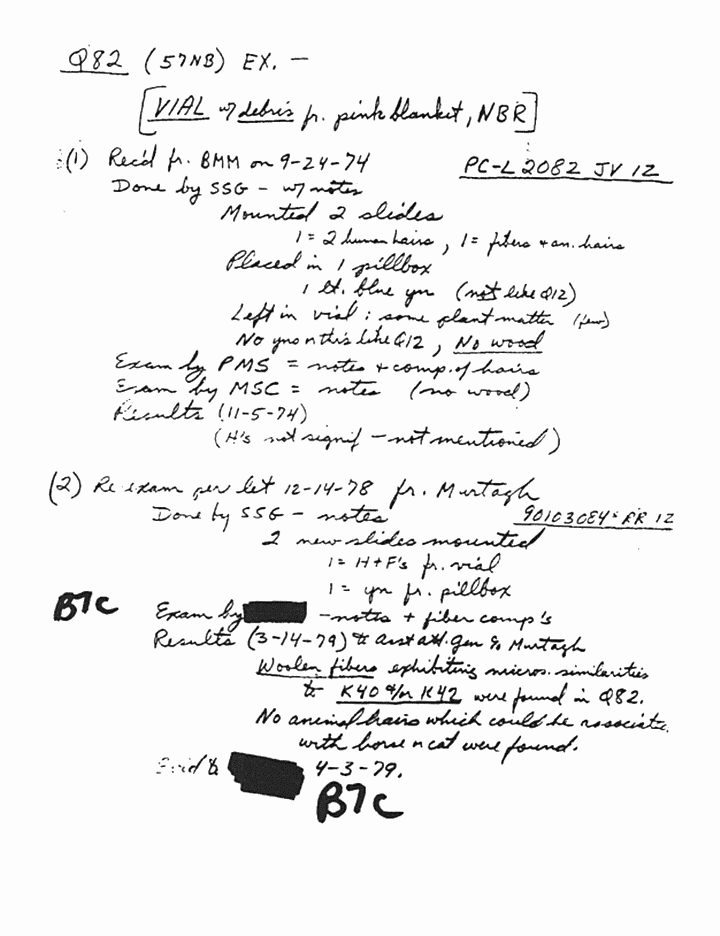 Q82 (57NB) EX. —
[VIAL w/ debris fr. pink blanket, NBR]
(1) Rec'd fr. BMM on 9-24-74 PC-L 2082 JV 12
Done by SSG - w/ notes
Mounted 2 slides
1 = 2 human hairs, 1 = fibers + an. hairs
Placed in 1 pillbox
1 lt. blue yn (not like Q12)
Left in vial: some plant matter (few)
No yns n th's like Q12, No wood
Exam by PMS = notes + comp. of hairs
Exam by MSC = notes (no wood)
Results (11-5-74)
(H's not signif - not mentioned)
(2) Re exam per let 12-14-78 fr. Murtagh
Done by SSG - notes 90103084 RR 12
2 new slides mounted
1 = H + F's fr. vial
1 = yn fr. pillbox
B7C
Exam by - notes + fiber comp's
Results (3-14-79) to Asst att. Gen % Murtagh
Woolen fibers exhibiting micros. similarities
to K40 &/or K42 were found in Q82.
No animal hairs which could be associate
with horse n cat were found.
4-3-79.
B7C